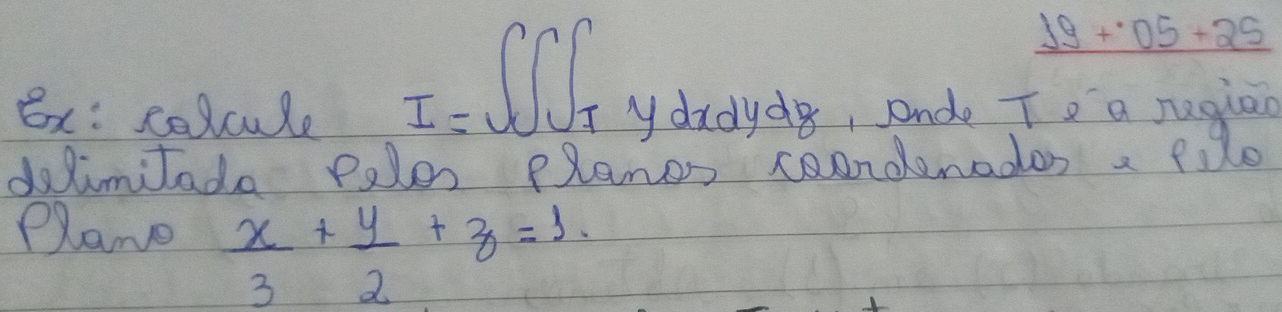 19+05+25
Ex: calcule I = ∭_T y dxdydz, onde T é a região
delimitada pelos planos coordenados e pelo
Plano x/3 + y/2 + z = 1.